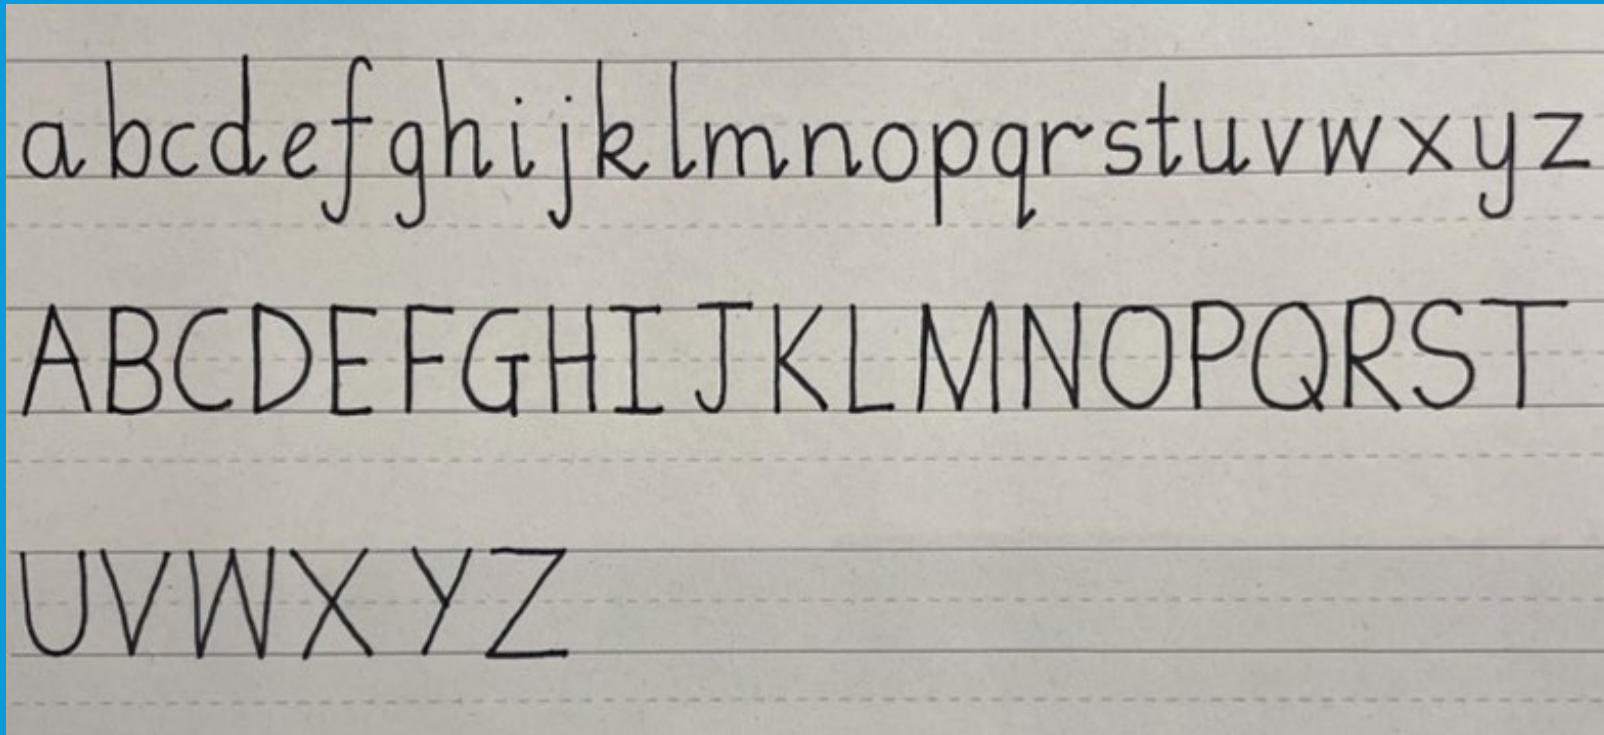 abcdefghijklmnopqrstuvwxyz
ABCDEFGHIJKLMNOPQRST
UVWXYZ